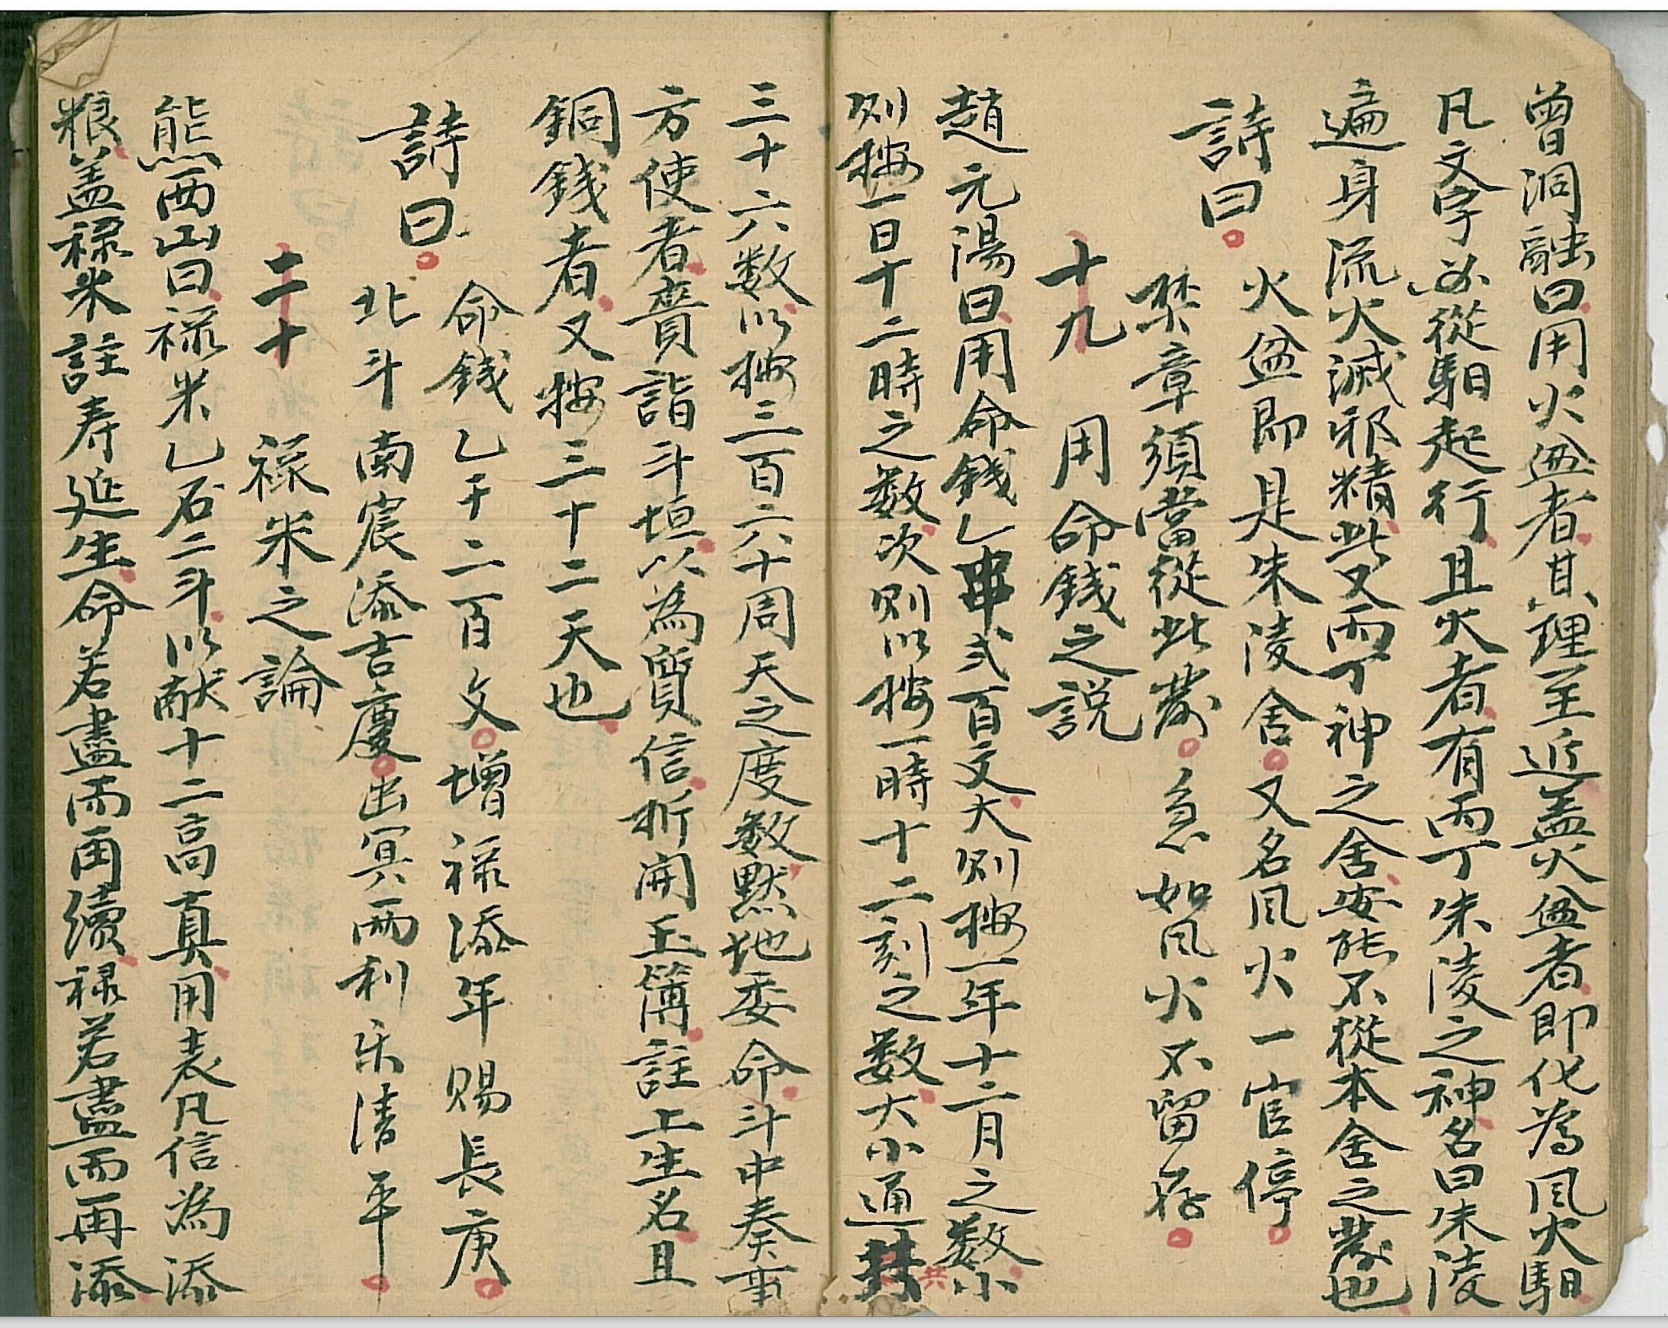 曾洞融曰用火盆者其理至近盖火盆者即化為風火馹
凡文字必從馹起行且火者有丙丁朱陵之神名曰朱陵
遍身流火滅邪精此又丙丁神之舍安能不從本舍之發也
詩曰
火盆即是朱陵舍又名風火一官停
焚章須當從此發急如風火不留
十九 用命錢之説
趙元陽曰用命錢乙串弍百文大則按一年十二月之数小
則按一日十二時之数次則以按一時十二刻之数大小通共
三十六数以按三百六十周天之度数默地委命斗中奏事
方使者賫詣斗垣以為質信折開玉簿註上生名且
銅錢者又按三十二天也
詩曰
命錢乙千二百文增禄添年賜長庚
北斗南宸添吉慶出冥兩利乐清平
二十 禄米之論
熊西山曰禄米乙石二斗以献十二高真用表凡信為添
粮盖禄米註寿延生命若盡而再續禄若盡而再添